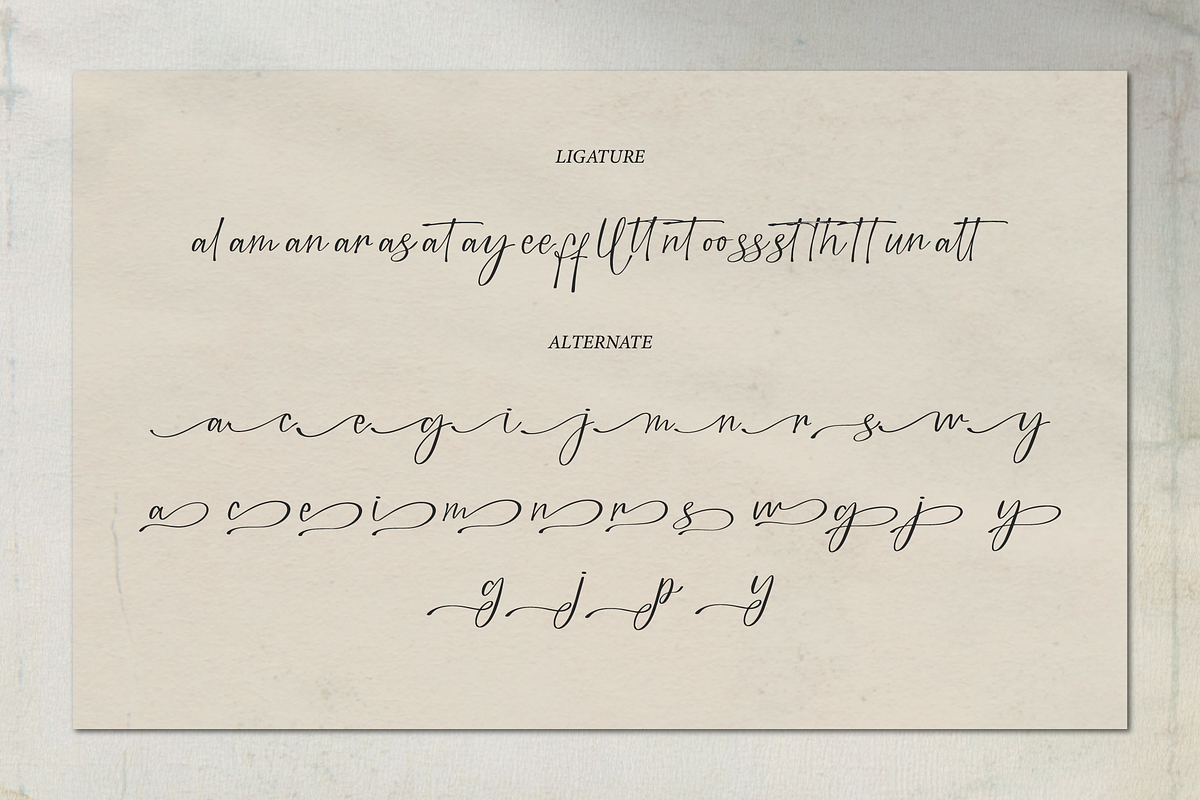 LIGATURE
al am an ar as at ay ee ff ll tt nt oo ss st th tt un att
ALTERNATE
a c e g i j m n r s w y
a c e i m n r s w g j y
g j p y